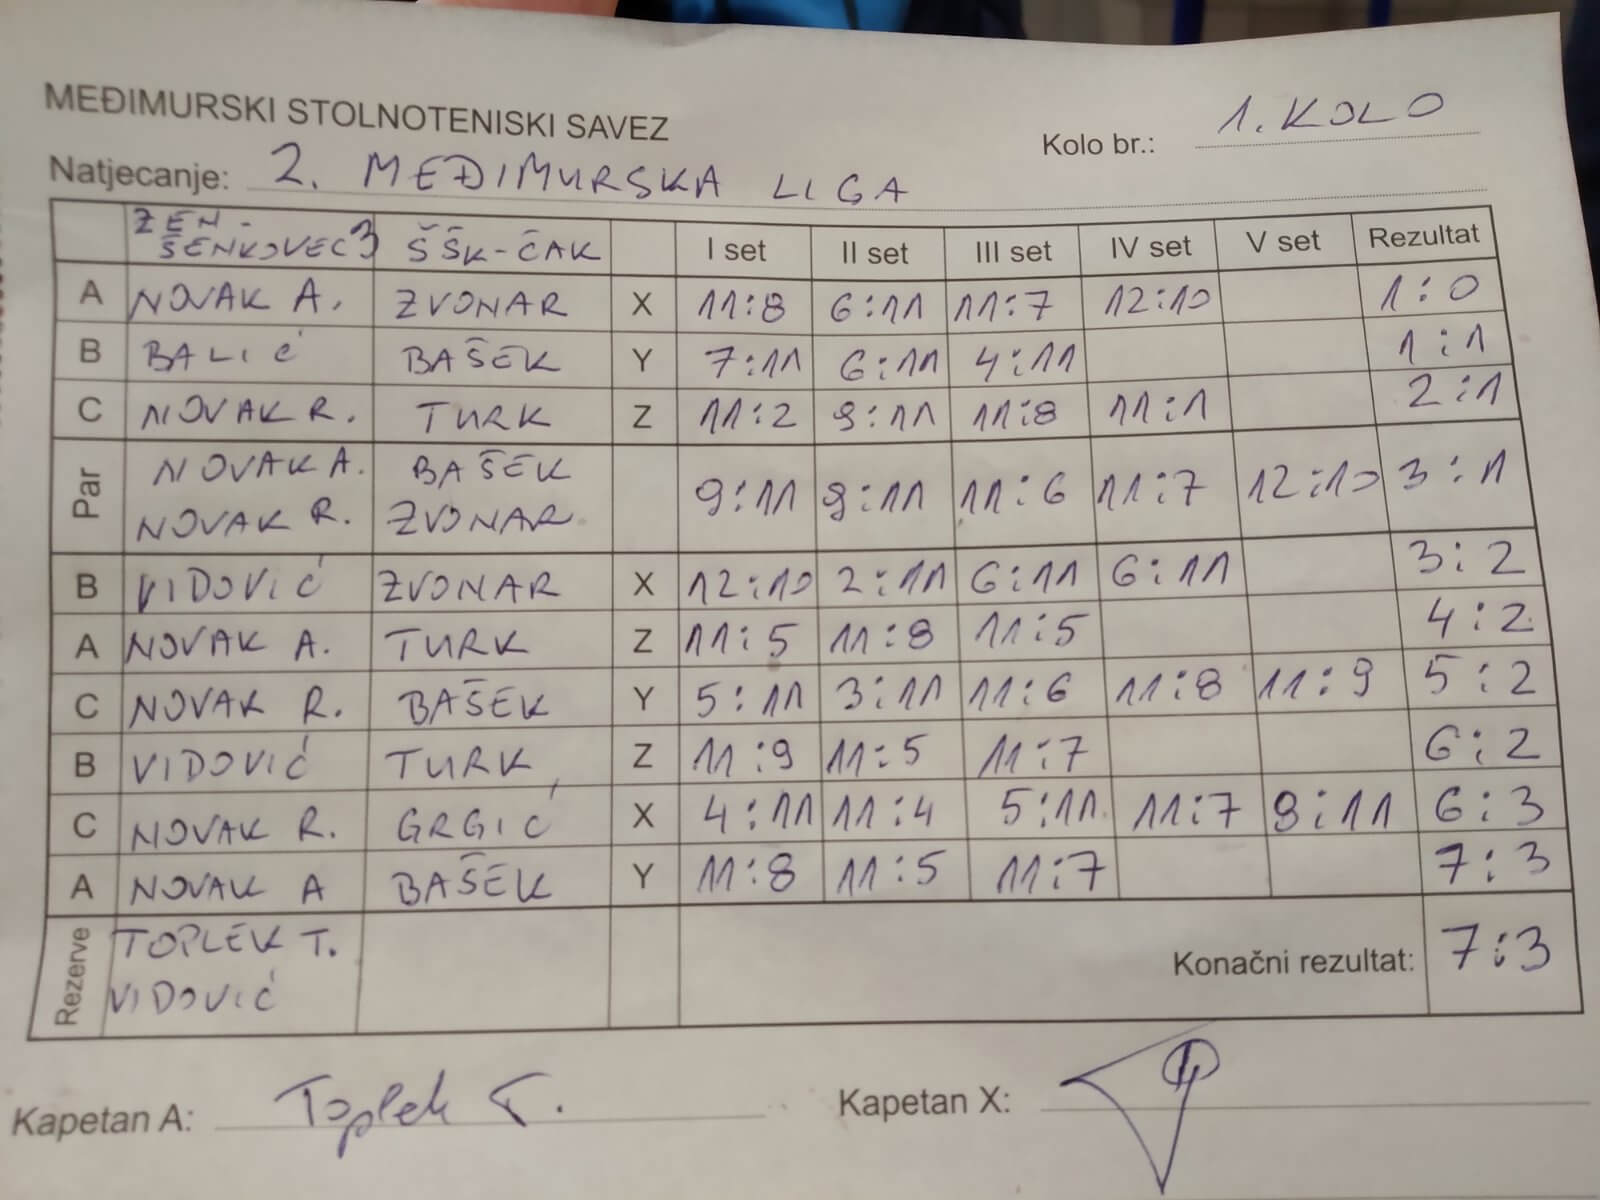 MEĐIMURSKI STOLNOTENISKI SAVEZ
Kolo br.: 1. KOLO
Natjecanje: 2. MEĐIMURSKA LIGA
ŽEN - ŠENKOVEC 3 ŠŠK-ČAK I set II set III set IV set V set Rezultat
A NOVAK A. ZVONAR X 11:8 6:11 11:7 12:10 1:0
B BALIĆ BAŠEK Y 7:11 6:11 4:11 1:1
C NOVAK R. TURK Z 11:2 9:11 11:8 11:1 2:1
Par NOVAK A. BAŠEK 9:11 9:11 11:6 11:7 12:10 3:1
NOVAK R. ZVONAR
B VIDOVIĆ ZVONAR X 12:10 2:11 6:11 6:11 3:2
A NOVAK A. TURK Z 11:5 11:8 11:5 4:2
C NOVAK R. BAŠEK Y 5:11 3:11 11:6 11:8 11:9 5:2
B VIDOVIĆ TURK Z 11:9 11:5 11:7 6:2
C NOVAK R. GRGIĆ X 4:11 11:4 5:11 11:7 9:11 6:3
A NOVAK A BAŠEK Y 11:8 11:5 11:7 7:3
Rezerve TOPLEK T. Konačni rezultat: 7:3
VIDOVIĆ
Kapetan A: Toplek T. Kapetan X: